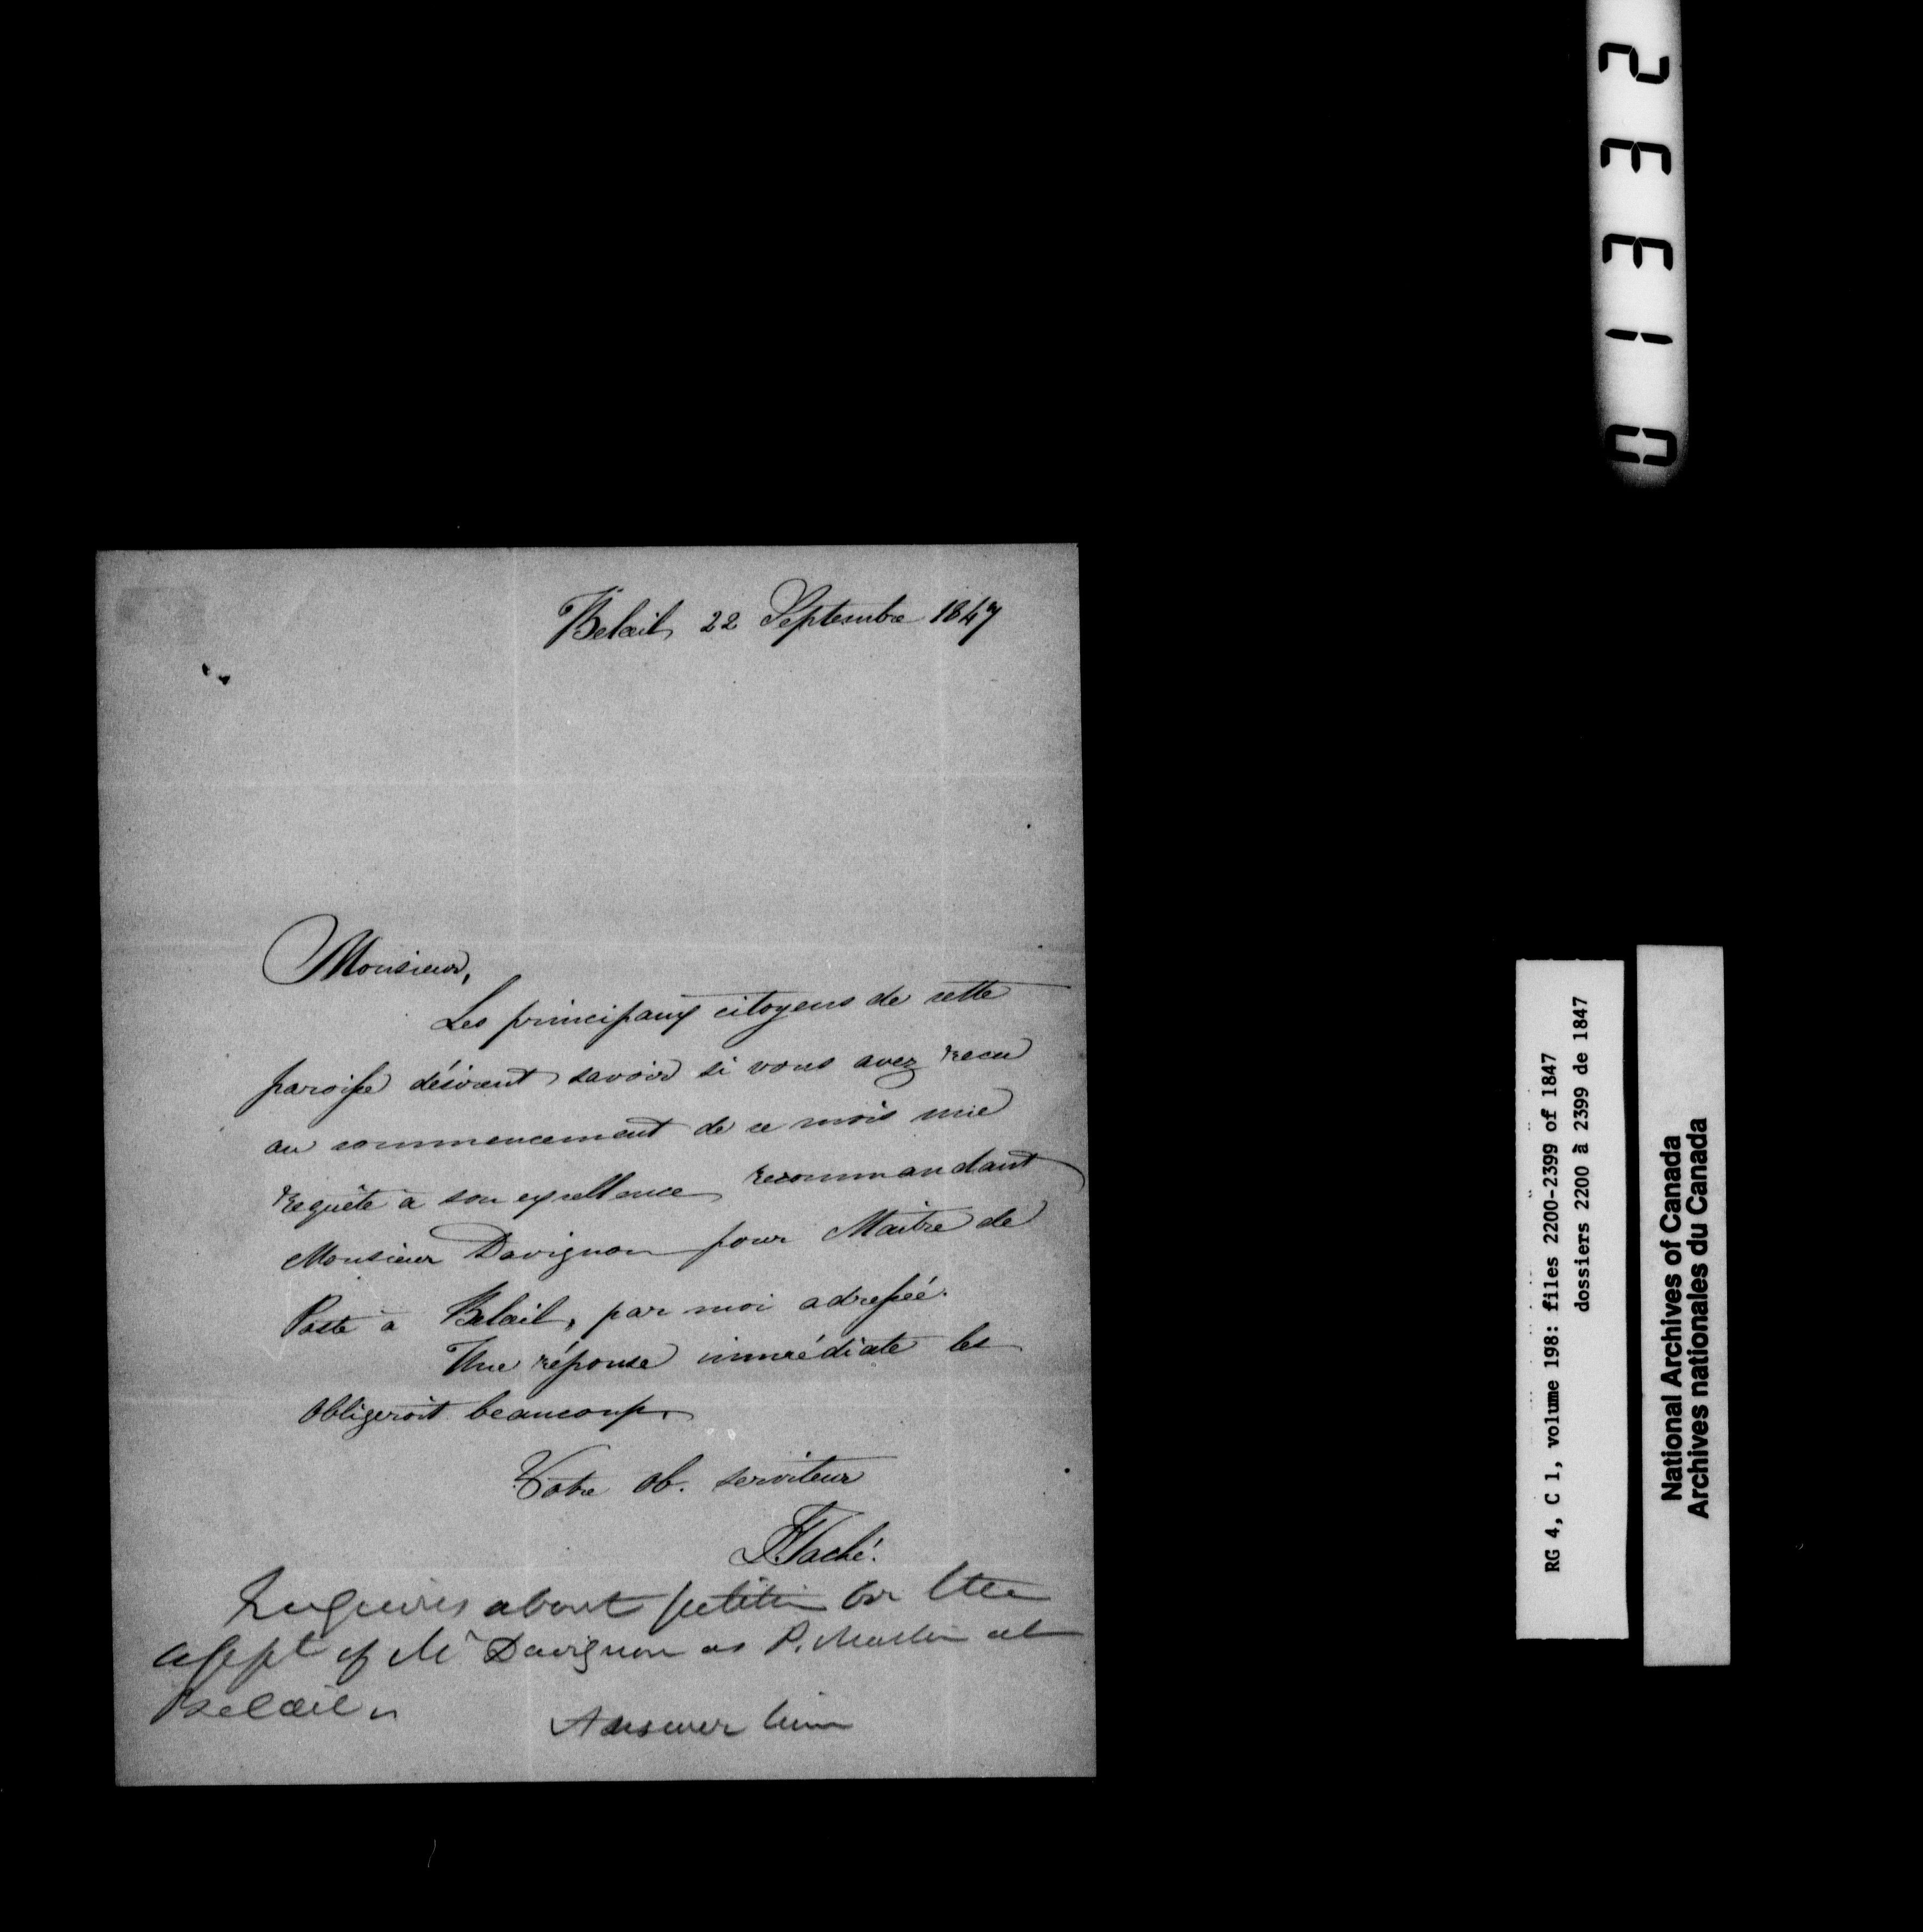 Belœil, 22 Septembre 1847
Monsieur,
Les principaux citoyens de cette
paroisse désirent savoir si vous avez recu
au commencement de ce mois une
requête à son excellence recommandant
Monsieur Davignon pour Maitre de
Poste à Belœil, par moi adressée.
Une réponse immédiate les
obligeroit beaucoup.
Votre ob. serviteur
Taché.
Inquires about petition for the
appt of Mr Davignon as P. Master at
Belœil
Answer him
01332
RG 4, C 1, volume 198: files 2200-2399 of 1847
dossiers 2200 à 2399 de 1847
National Archives of Canada
Archives nationales du Canada